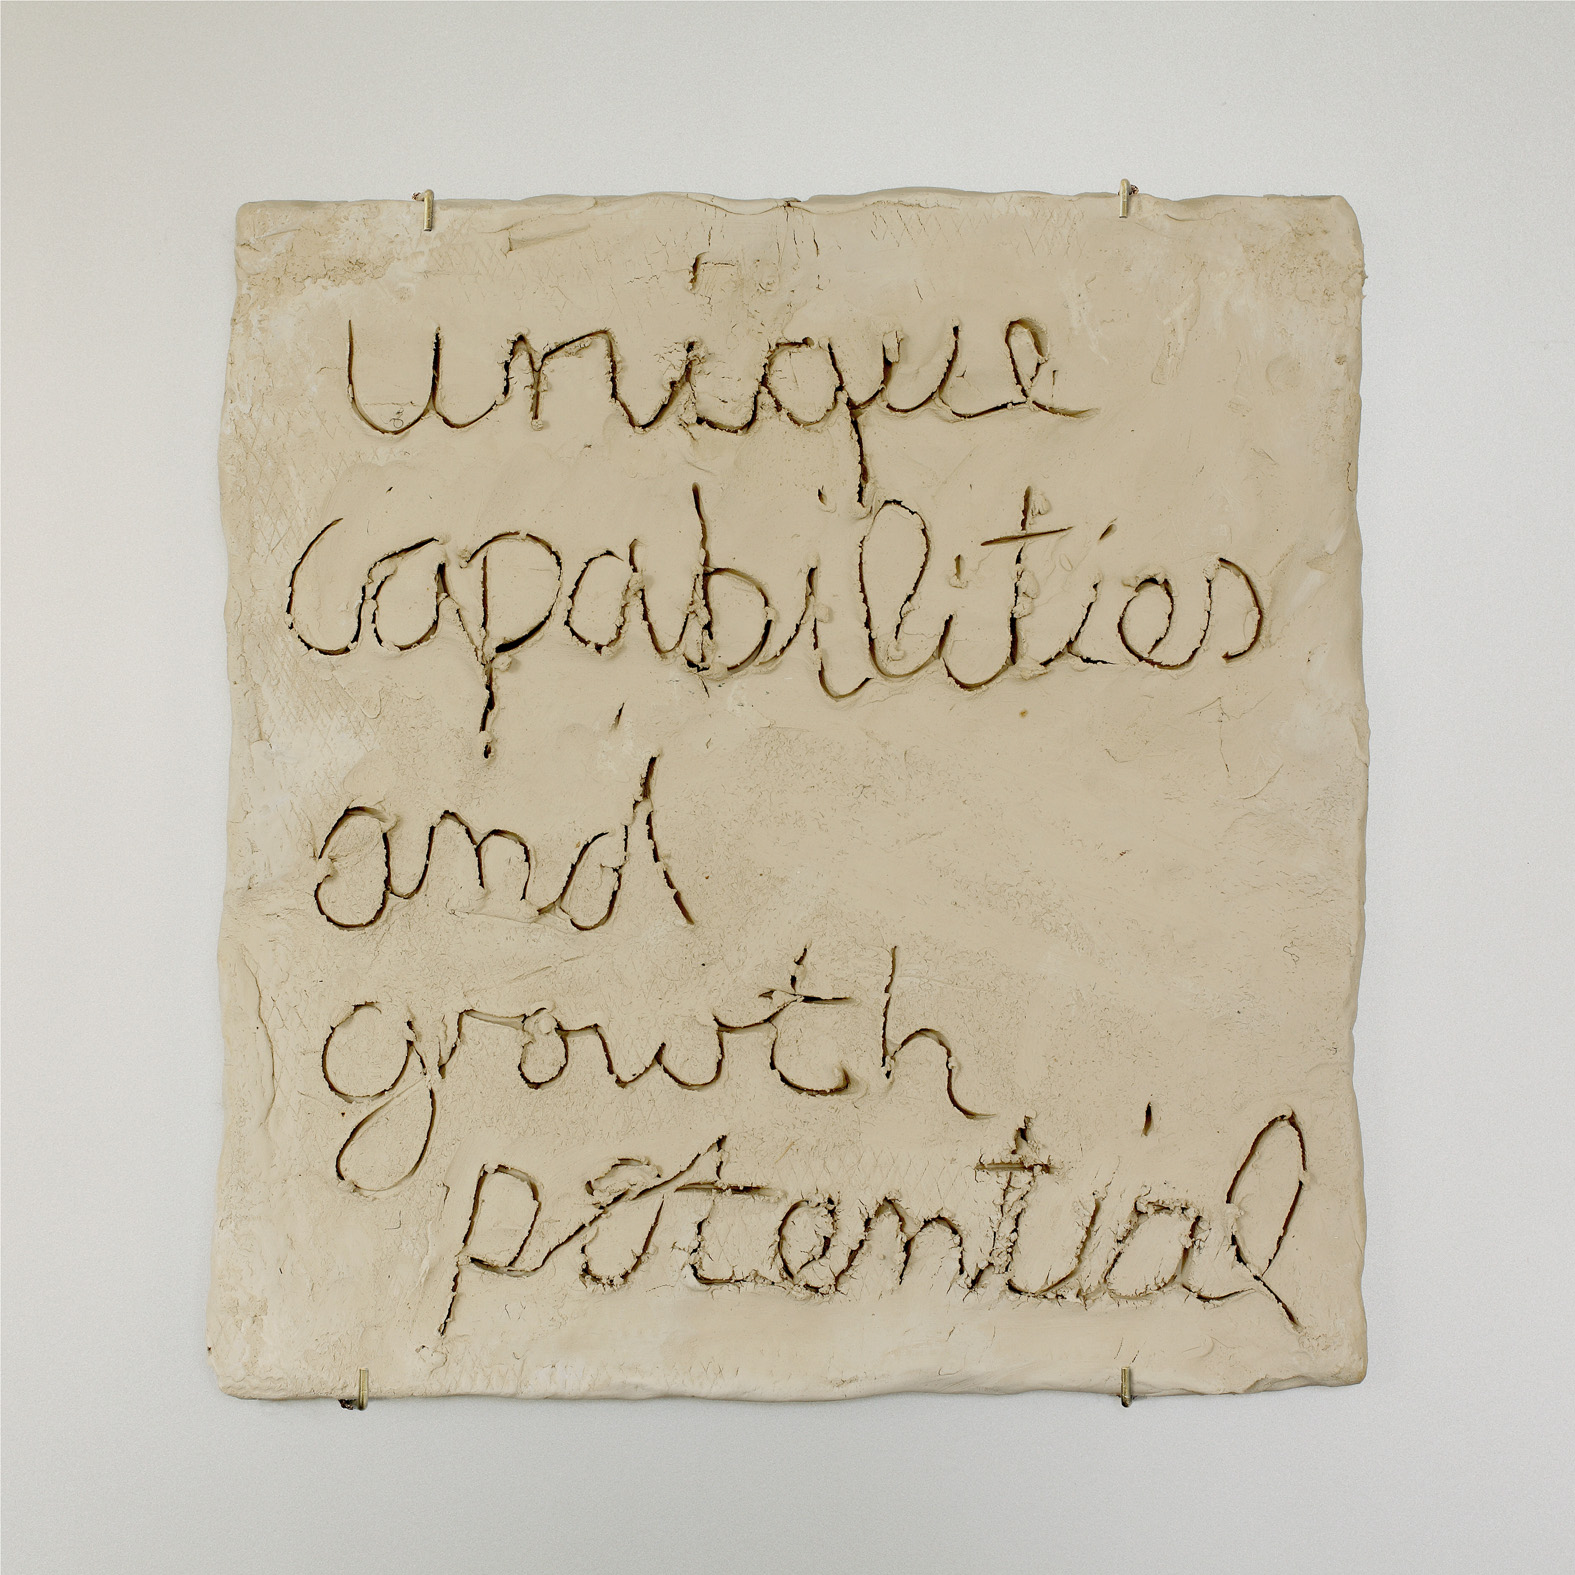 unique
capabilities
and
growth
potential